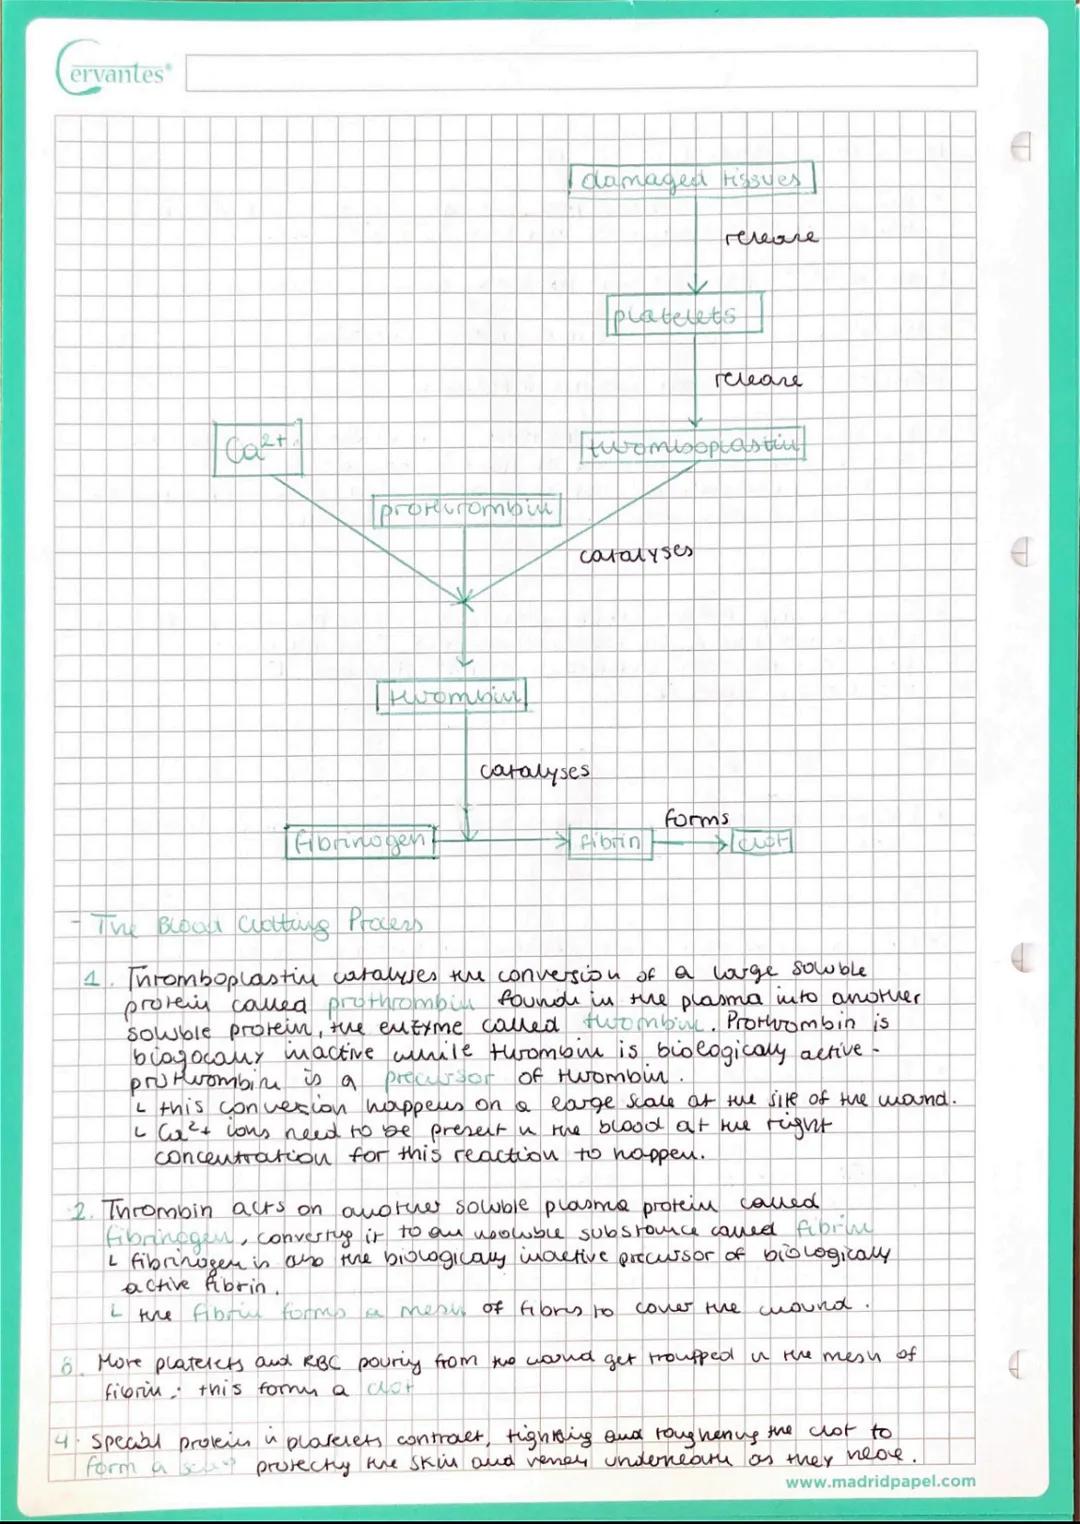 Cervantes®
damaged tissues
release
platelets
release
Ca²⁺
thromboplastin
prothrombin
catalyses
thrombin
catalyses
forms
fibrinogen
fibrin
clot
- The Blood Clotting Process
1. Thromboplastin catalyses the conversion of a large soluble
protein called prothrombin found in the plasma into another
soluble protein, the enzyme called thrombin. Prothrombin is
inactive while thrombin is biologically active.
prothrombin is a precursor of thrombin.
↳ this conversion happens on a large scale at the site of the wound.
↳ Ca²⁺ ions need to be present in the blood at the right
concentration for this reaction to happen.
2. Thrombin acts on another soluble plasma protein called
fibrinogen, converting it to an insoluble substance called fibrin
↳ fibrinogen is also the biologically inactive precursor of biologically
active fibrin.
↳ the fibrin forms a mesh of fibres to cover the wound.
3. More platelets and RBC pouring from the wound get trapped in the mesh of
fibrin; this forms a clot
4. Special proteins in platelets contract, tightening and toughening the clot to
form a scab protecting the skin and underneath as they
www.madridpapel.com